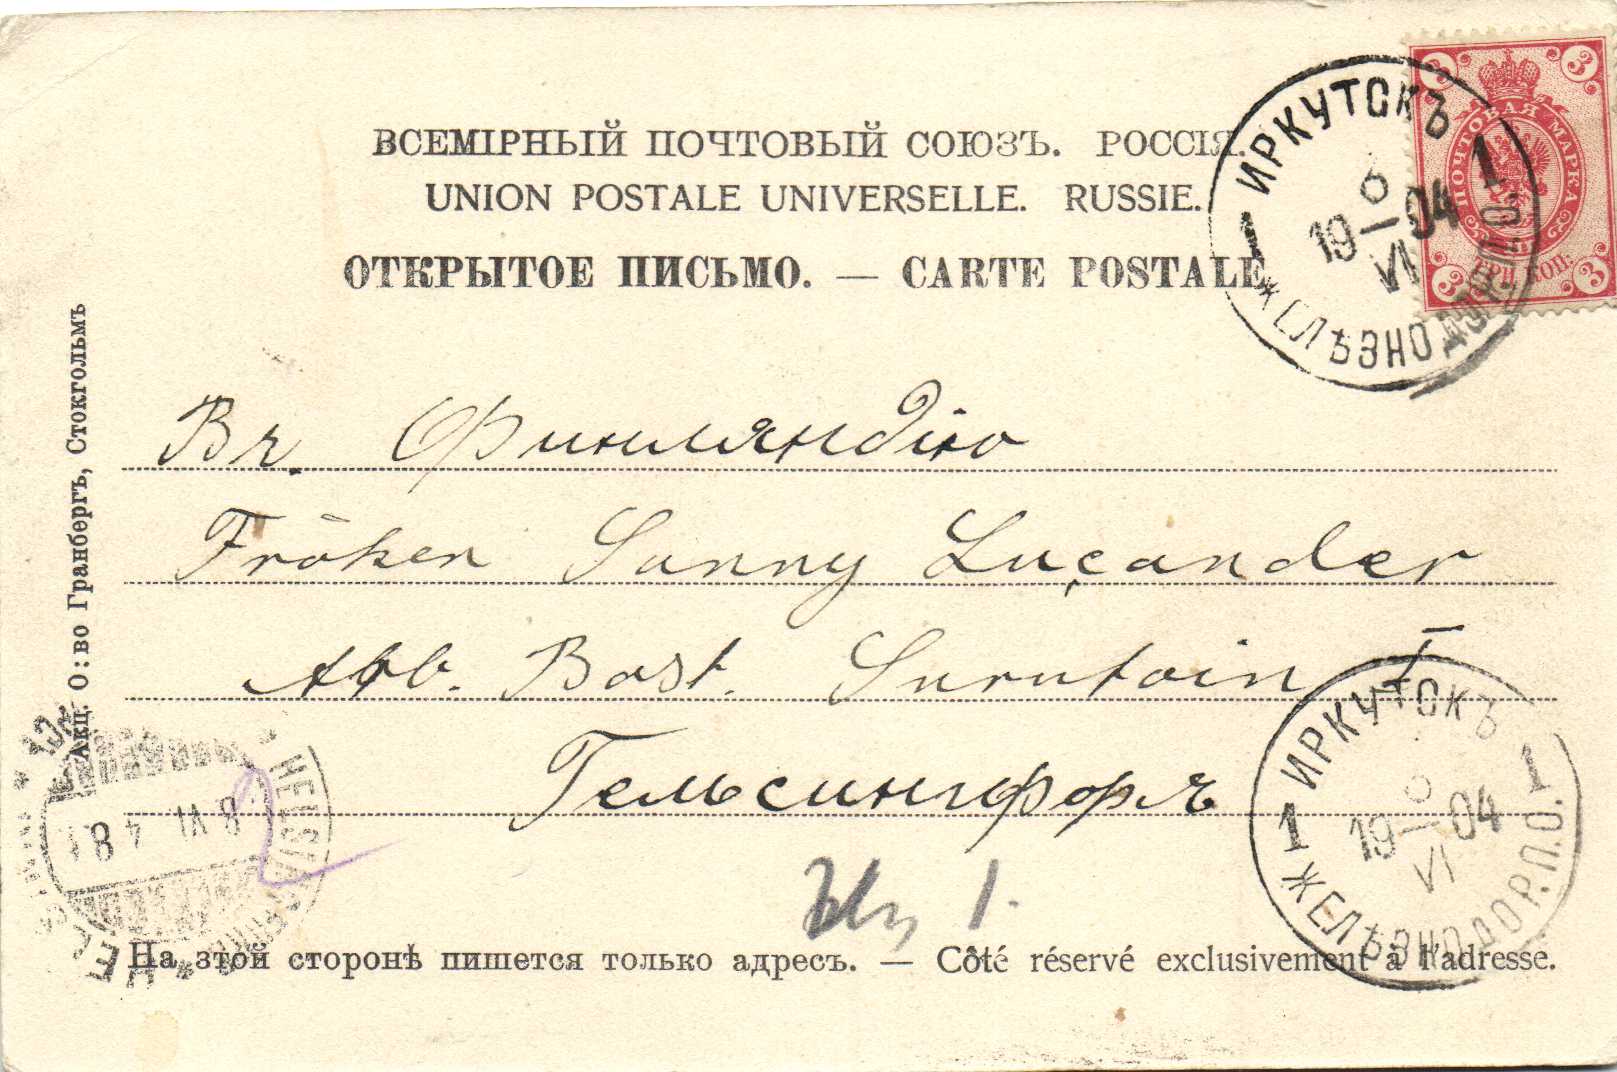 ВСЕМІРНЫЙ ПОЧТОВЫЙ СОЮЗЪ. РОССІЯ.
UNION POSTALE UNIVERSELLE. RUSSIE.
ОТКРЫТОЕ ПИСЬМО. — CARTE POSTALE
ПОЧТОВАЯ МАРКА
3 3 3 3
ТРИ КОП.
ИРКУТСКЪ
1 1
6
19—04
VI
ЖЕЛѢЗНОДОР. П.О.
Въ. Финляндію
Fröken Sanny Luçander
Bost.
Гельсингфорсъ
1.
ИРКУТСКЪ
1 1
19—04
VI
ЖЕЛѢЗНОДОР. П.О.
HELSINGFORS
8 VI. 4
На этой сторонѣ пишется только адресъ. — Côté réservé exclusivement à l'adresse.
Акц. О:во Гранбергъ, Стокгольмъ